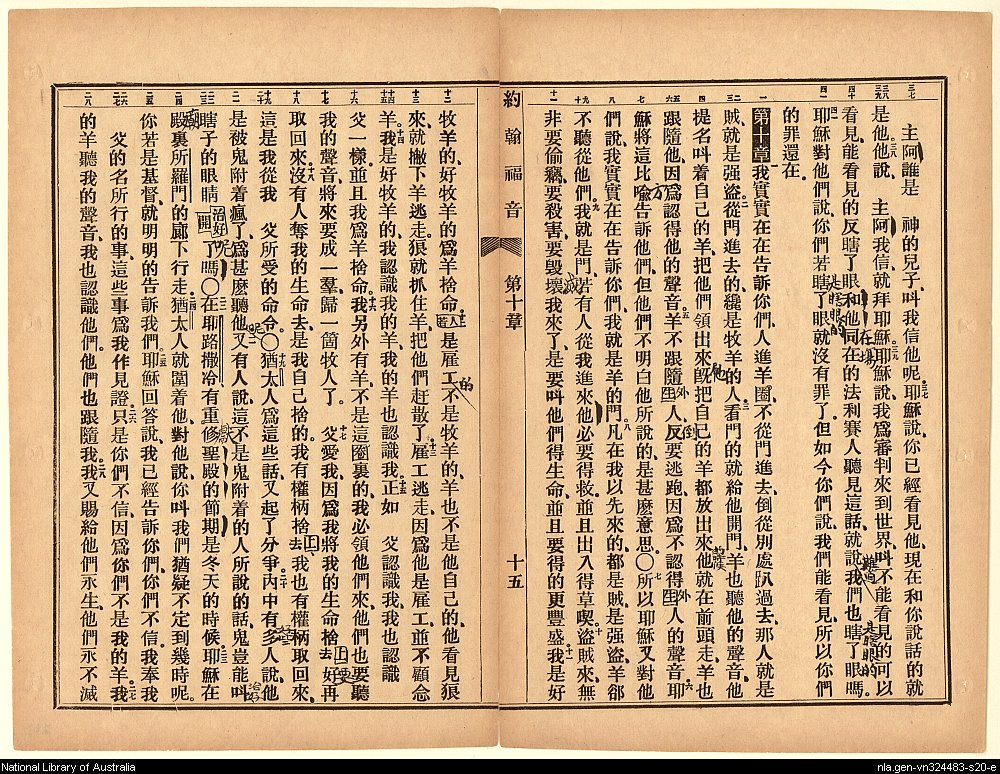 主阿誰是　神的兒子呌我信他呢耶穌說你已經看見他現在和你說話的就
是他他說　主阿我信就拜耶穌耶穌說我爲審判來到世界呌不能看見的可以
看見能看見的反瞎了眼和他同在的法利賽人聽見這話就說我們也瞎了眼嗎
耶穌對他們說你們若瞎了眼就沒有罪了但如今你們說我們能看見所以你們
的罪還在
第十章 我實實在在告訴你們人進羊圈不從門進去倒從別處趴過去那人就是
賊就是强盜從門進去的纔是牧羊的人看門的就給他開門羊也聽他的聲音他
提名呌着自己的羊把他們領出來旣把自己的羊都放出來他就在前頭走羊也
跟隨他因爲認得他的聲音羊不跟隨生人反要逃跑因爲不認得生人的聲音耶
穌將這比喩告訴他們但他們不明白他所說的是甚麽意思○所以耶穌又對他
們說我實實在在告訴你們我就是羊的門凡在我以先來的都是賊是强盜羊郤
不聽從他們我就是門若有人從我進來他必要得救並且出入得草喫盜賊來無
非要偷竊要殺害要毀壞我來了是要呌他們得生命並且要得的更豐盛我是好
約翰福音　第十章　十五
牧羊的好牧羊的爲羊捨命是雇工不是牧羊的羊也不是他自己的他看見狼
來就撇下羊逃走狼就抓住羊把他們赶散了雇工逃走因爲他是雇工並不顧念
羊我是好牧羊的我認識我的羊我的羊也認識我正如　父認識我我也認識
父一樣並且我爲羊捨命我另外有羊不是這圈裏的我必領他們來他們也要聽
我的聲音將來要成一羣歸一箇牧人了　父愛我因爲我將我的生命捨去好再
取回來沒有人奪我的生命去是我自己捨的我有權柄捨去我也有權柄取回來
這是我從我　父所受的命令○猶太人爲這些話又起了分爭內中有多人說他
是被鬼附着瘋了爲甚麽聽他又有人說這不是鬼附着的人所說的話鬼豈能呌
瞎子的眼睛開了嗎○在耶路撒冷有重修聖殿的節期是冬天的時候耶穌在
殿裏所羅門的廊下行走猶太人就圍着他對他說你呌我們猶疑不定到幾時呢
你若是基督就明明的告訴我們耶穌回答說我已經告訴你們你們不信我奉我
父的名所行的事這些事爲我作見證只是你們不信因爲你們不是我的羊我
的羊聽我的聲音我也認識他們他們也跟隨我我又賜給他們永生他們永不滅
National Library of Australia
nla.gen-vn324483-s20-e